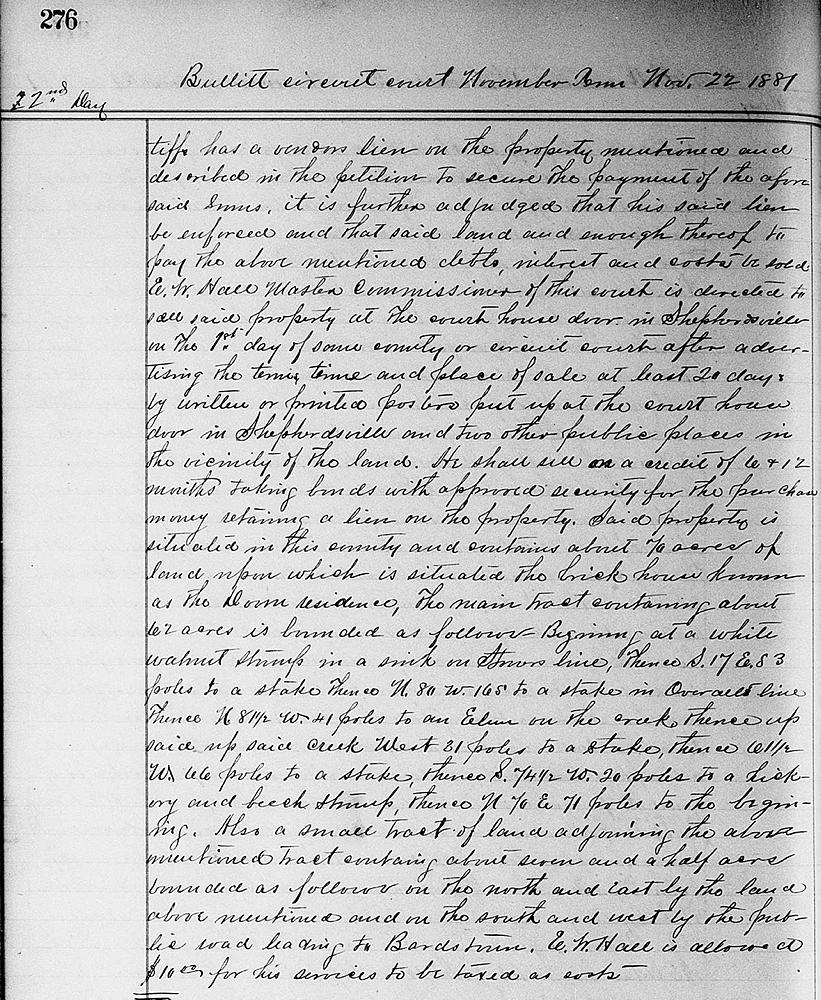 276
Bullitt circuit court November Term Nov. 22 1881
22nd Day
tiff has a vendors lien on the property mentioned and
described in the petition to secure the payment of the afore
said sums, it is further adjudged that his said lien
be enforced and that said land and enough thereof to
pay the above mentioned debts, interest and costs be sold
E. W. Hall Master Commissioner of this court is directed to
sell said property at the court house door in Shepherdsville
on the 1st day of some county or circuit court after adver-
tising the terms, time and place of sale at least 20 days
by written or printed posters put up at the court house
door in Shepherdsville and two other public places in
the vicinity of the land. He shall sell on a credit of 6 & 12
months taking bonds with approved security for the purchase
money retaining a lien on the property. Said property is
situated in this county and contains about 70 acres of
land, upon which is situated the brick house known
as the residence, the main tract containing about
62 acres is bounded as follows Begining at a white
walnut stump in a sink on line, thence S. 17 E. 53
poles to a stake thence N. 80 W. 165 to a stake in Overalls line
thence N 81½ W. 41 poles to an Eelm on the creek, thence up
said up said creek West 31 poles to a stake, thence 61½
W. 66 poles to a stake, thence S. 74½ W. 20 poles to a hick-
ory and beech stump, thence N 70 E 71 poles to the begin-
ing. Also a small tract of land adjoining the above
mentioned tract containg about seven and a half acres
bounded as follows on the north and East by the land
above mentioned and on the south and west by the pub-
lic road leading to Bardstown. E. W. Hall is allowed
$10.00 for his services to be taxed as costs